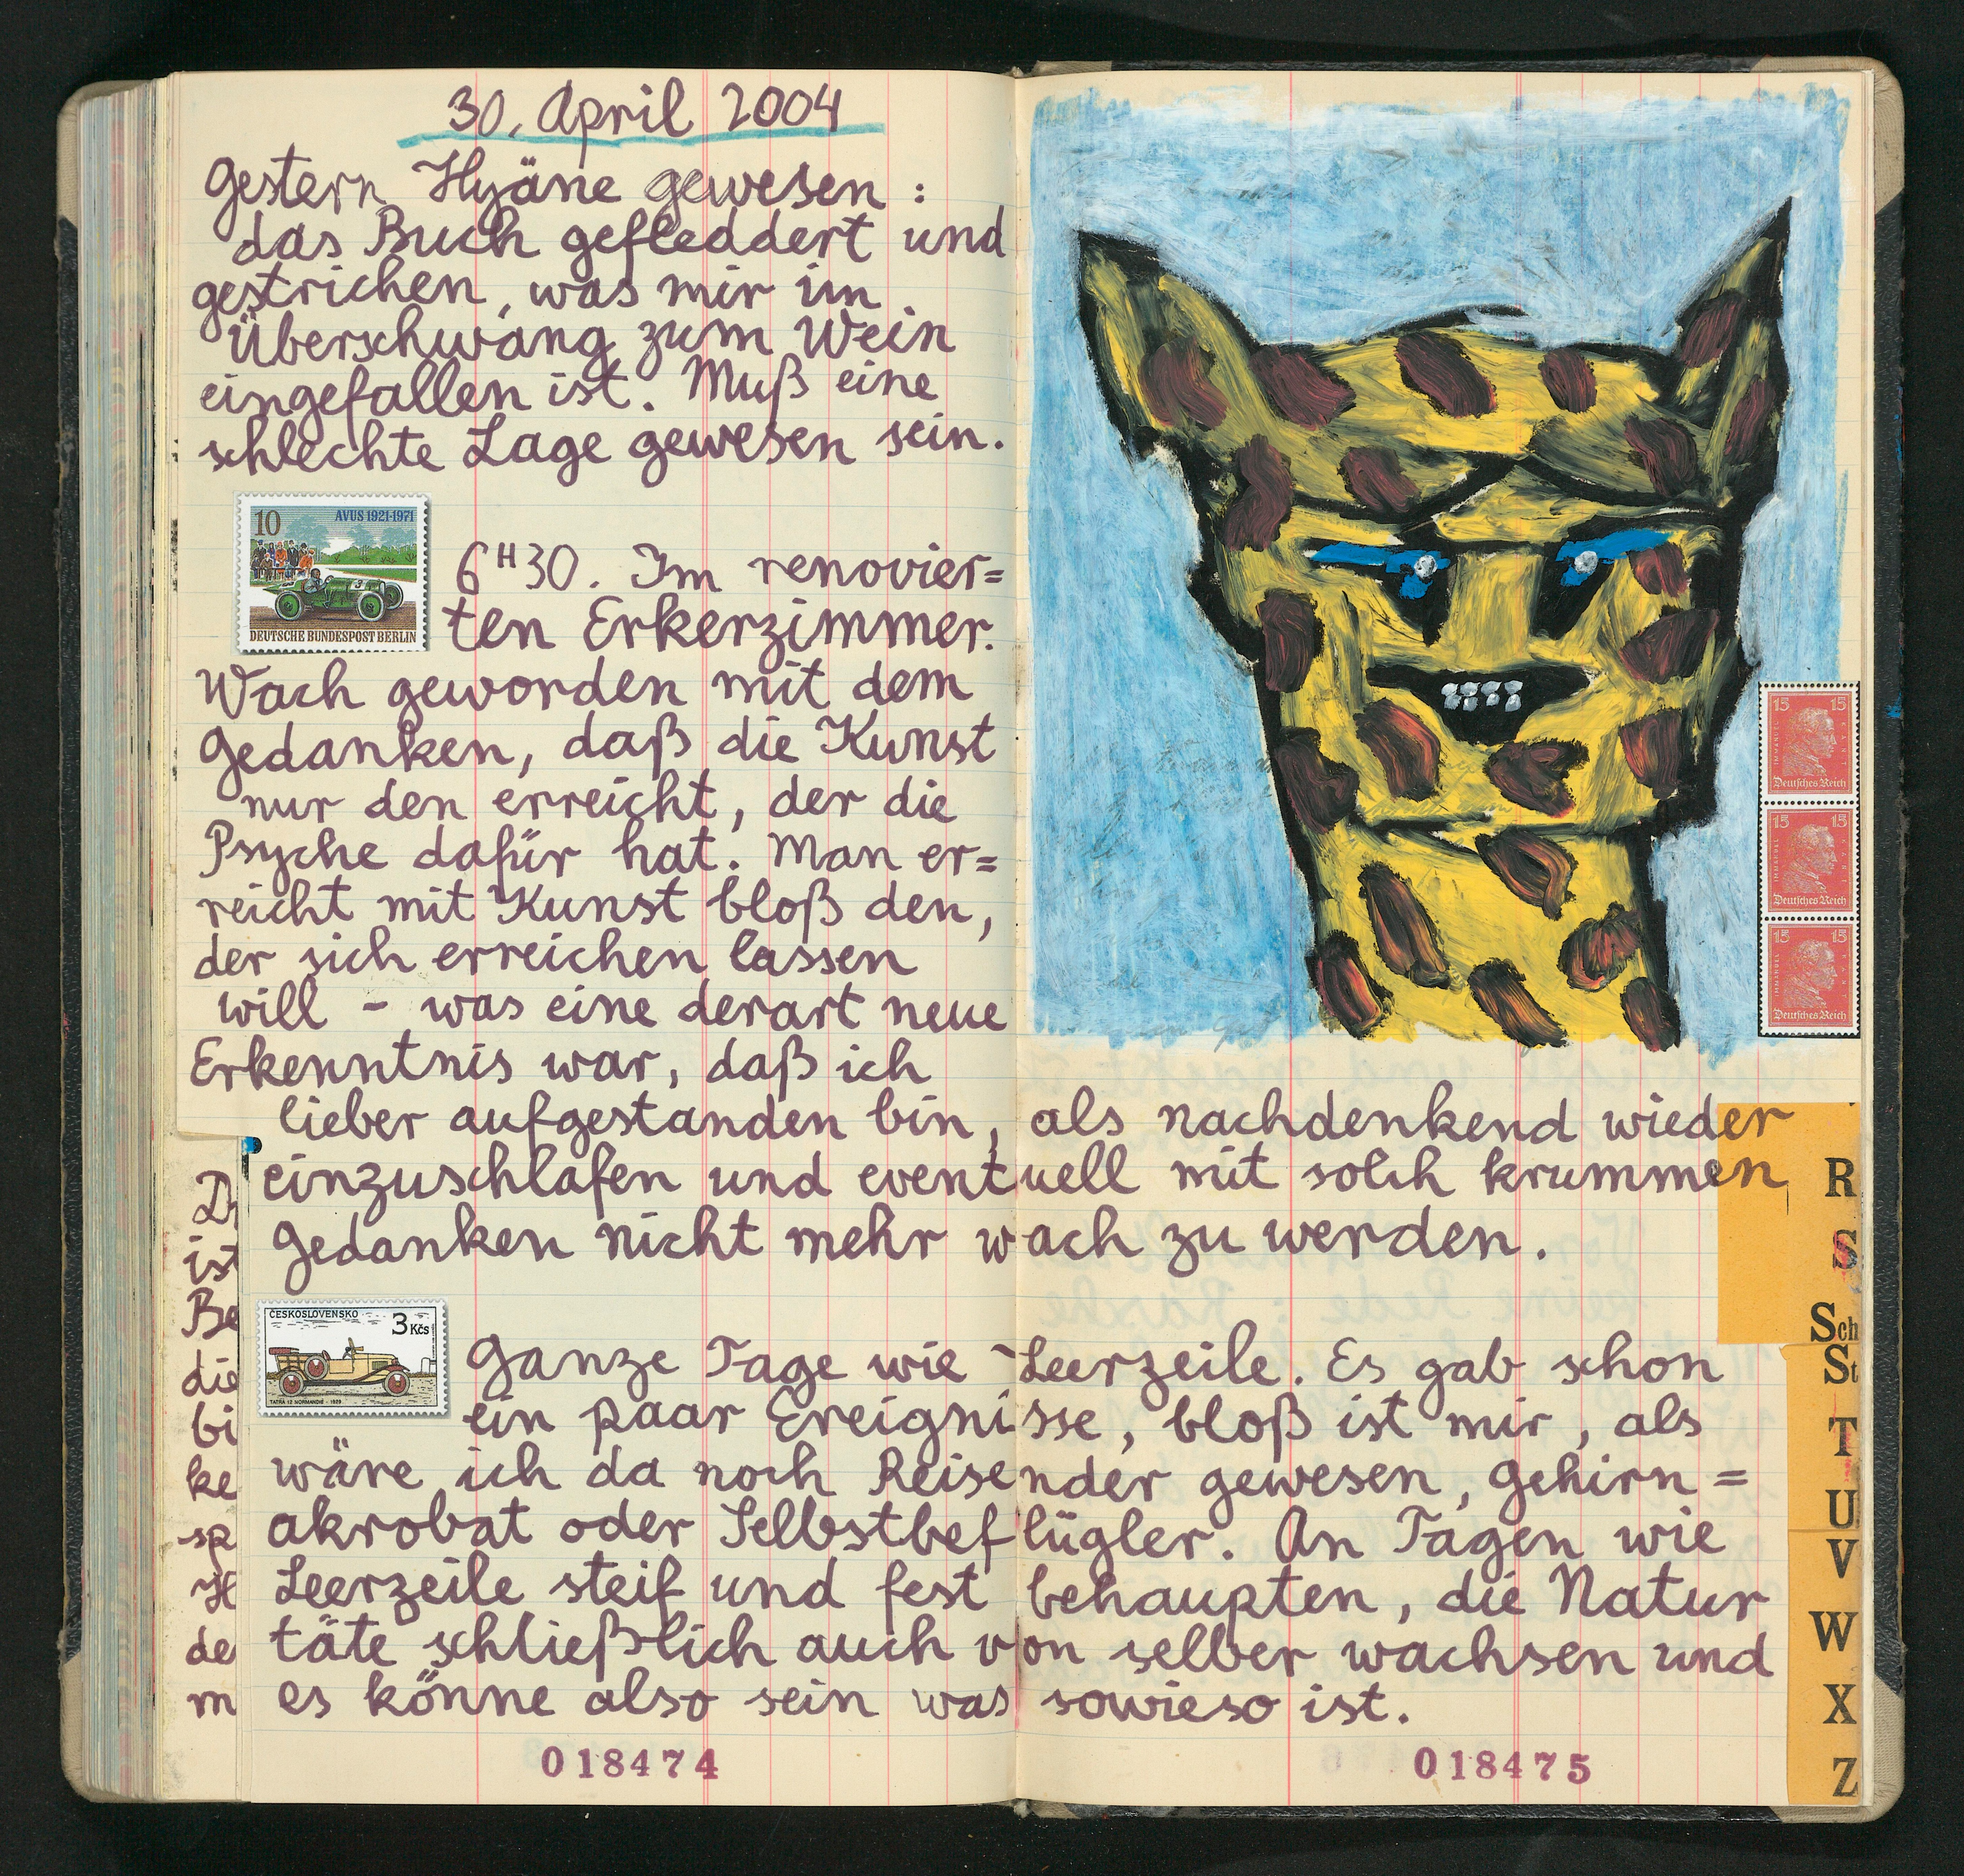 30. April 2004
Gestern Hyäne gewesen:
das Buch gefleddert und
gestrichen, was mir im
Überschwang zum Wein
eingefallen ist. Muß eine
schlechte Lage gewesen sein.
10
AVUS 1921-1971
DEUTSCHE BUNDESPOST BERLIN
6H30. Im renovier=
ten Erkerzimmer.
Wach geworden mit dem
Gedanken, daß die Kunst
nur den erreicht, der die
Psyche dafür hat. Man er=
reicht mit Kunst bloß den,
der sich erreichen lassen
will - was eine derart neue
Erkenntnis war, daß ich
lieber aufgestanden bin, als nachdenkend wieder
einzuschlafen und eventuell mit solch krummen
Gedanken nicht mehr wach zu werden.
ČESKOSLOVENSKO
3 Kčs
TATRA 12 NORMANDIE - 1929
Ganze Tage wie Leerzeile. Es gab schon
ein paar Ereignisse, bloß ist mir, als
wäre ich da noch Reisender gewesen, Gehirn=
akrobat oder Selbstbeflügler. An Tagen wie
Leerzeile steif und fest behaupten, die Natur
täte schließlich auch von selber wachsen und
es könne also sein was sowieso ist.
018474
15 15
IMMANUEL KANT
Deutsches Reich
15 15
IMMANUEL KANT
Deutsches Reich
15 15
IMMANUEL KANT
Deutsches Reich
R
S
Sch
St
T
U
V
W
X
Z
018475
ist
Be
die
bi
ke
sp
H
de
m